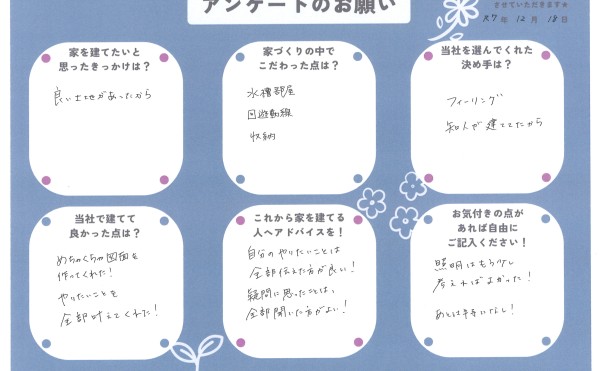 アンケートのお願い
させていただきます※
R7年 12月 18日
家を建てたいと
思ったきっかけは？
良い土地があったから
家づくりの中で
こだわった点は？
水槽部屋
回遊動線
収納
当社を選んでくれた
決め手は？
フィーリング
知人が建ててたから
当社で建てて
良かった点は？
めちゃくちゃ図面を
作ってくれた！
やりたいことを
全部叶えてくれた！
これから家を建てる
人へアドバイスを！
自分のやりたいことは
全部伝えた方が良い！
疑問に思ったことは、
全部聞いた方がよい！
お気付きの点が
あれば自由に
ご記入ください！
照明はもう少し
考えればよかった！
あとは手直しなし！